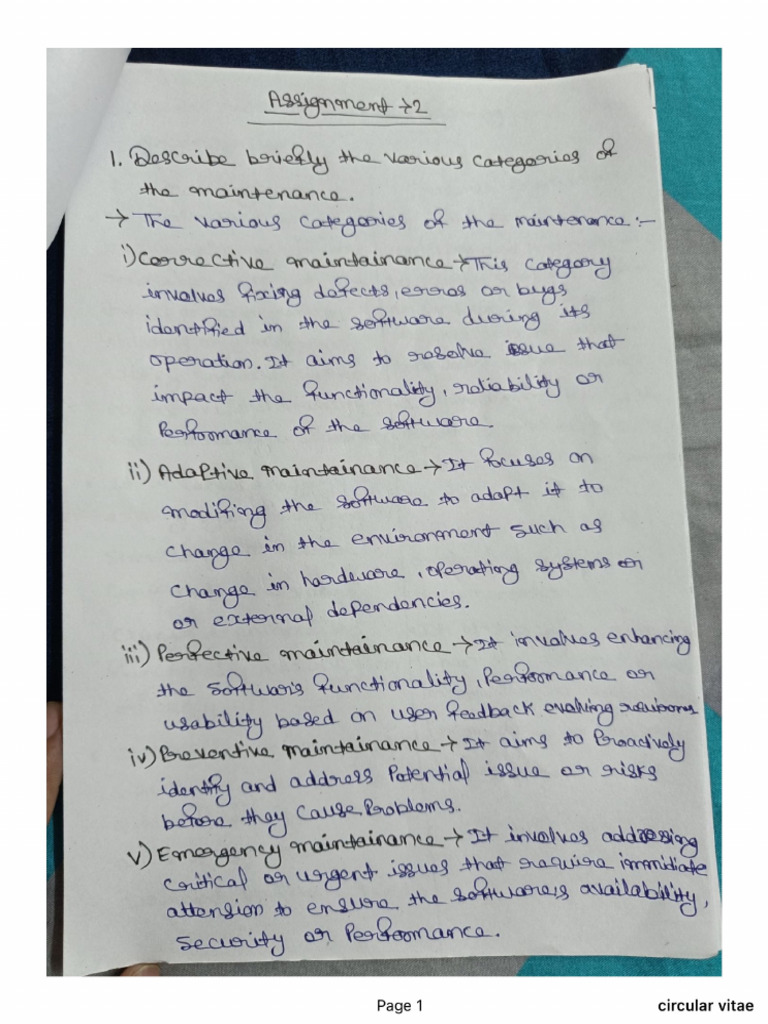 Assignment → 2
1. Describe briefly the various categories of
the maintenance.
→ The various categories of the maintenance :-
i) Corrective maintainance → This category
involves fixing defects, erros or bugs
identified in the software during its
operation. It aims to resolve issue that
impact the functionality, reliability or
Performance of the software.
ii) Adaptive maintainance → It focuses on
modifing the software to adapt it to
change in the environment such as
change in hardware, operating systems or
or external dependencies.
iii) Perfective maintainance → It involves enhancing
the softwar's functionality, Performance or
usability based on user feedback evolving
iv) Preventive maintainance → It aims to Proactively
identify and address Potential issue or risks
before they cause Problems.
v) Emergency maintainance → It involves addressing
critical or urgent issues that require immidiate
attension to ensure the software's availability,
security or Performance.
Page 1
circular vitae